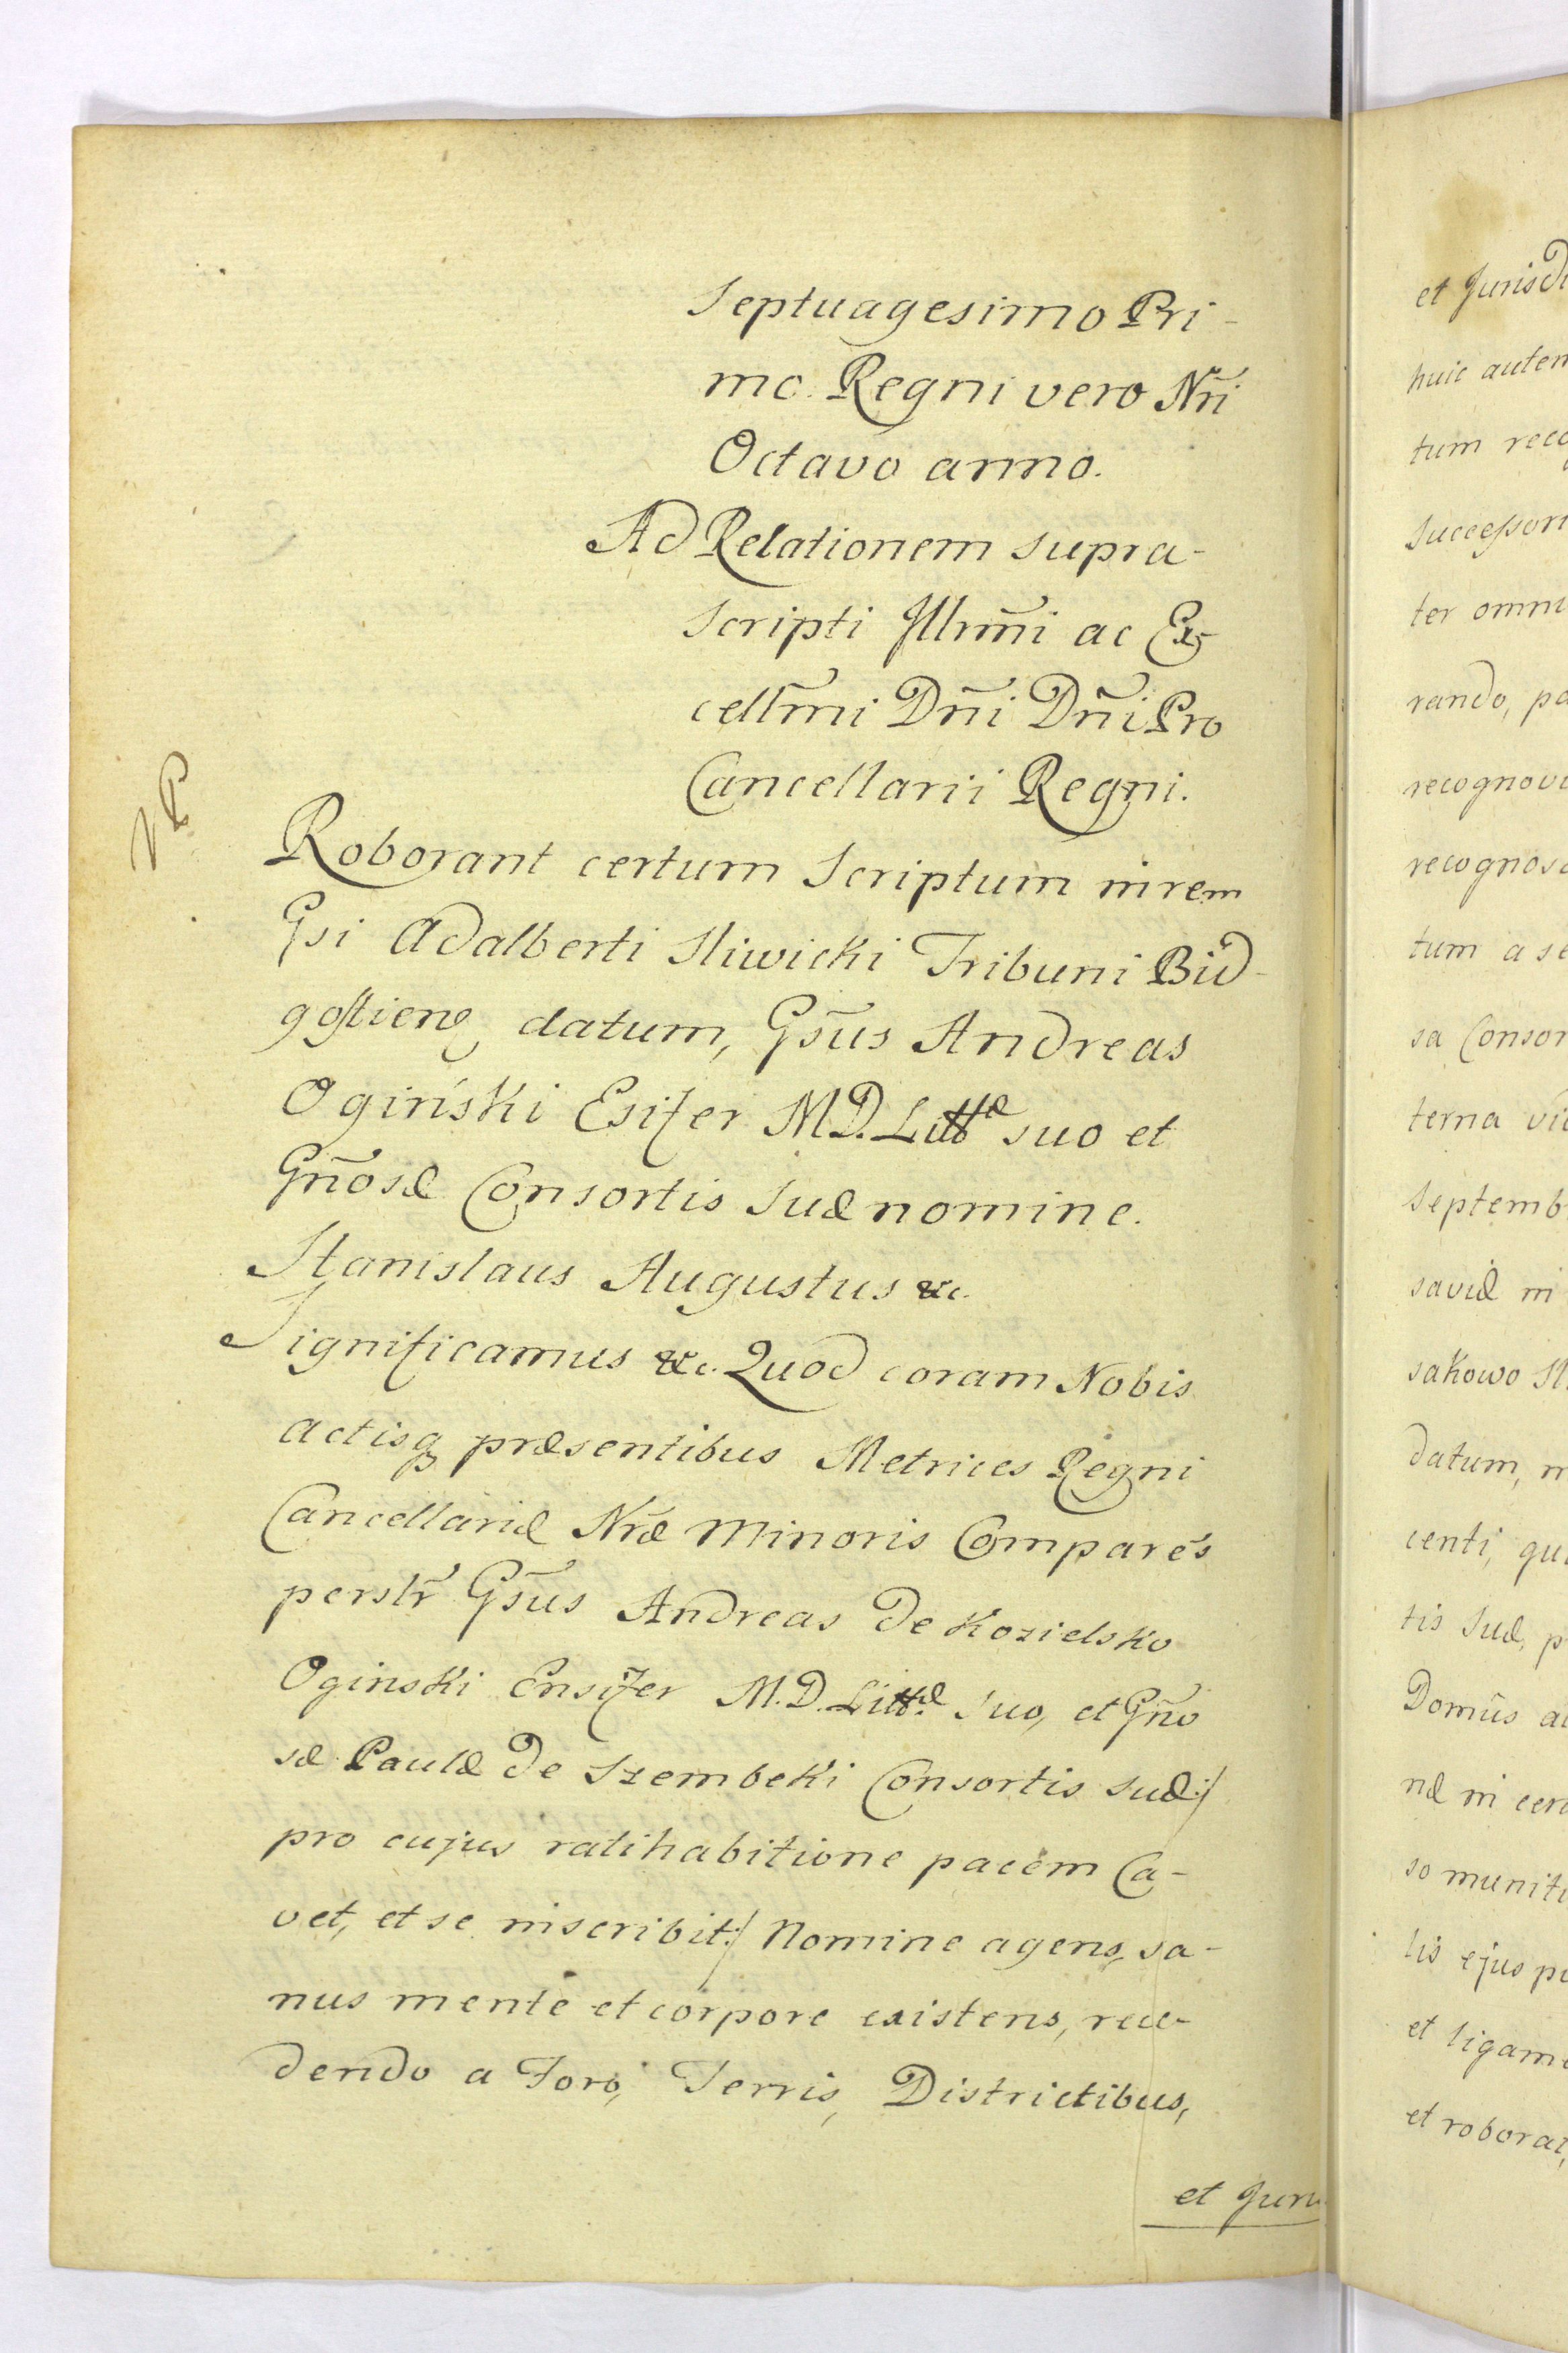 Septuagesimo Pri-
mo. Regni vero Nr̃i
Octavo anno.
Ad Relationem supra-
scripti Jllmñi ac Ex-
cellm̃i Dñi Dñi Pro
Cancellarii Regni.
VP
Roborant certum Scriptum in rem
Gsi Adalberti Sliwicki Tribuni Bid-
gostien datum, Gs̃us Andreas
Ogiński Esifer M.D. Littæ suo et
Gñosæ Consortis Suæ nomine.
Stanislaus Augustus &c.
Significamus &c. Quod coram Nobis
actisq præsentibus Metrices Regni
Cancellariæ Nr̃æ Minoris Comparẽs
perslr̃ Gs̃us Andreas de Kozielsko
Oginski Ensifer M.D. Littæ. Suo, et Gño
sæ Paulæ de Szembeki Consortis suæ:/
pro cujus ratihabitione pacem Ca-
vet, et se inscribit:/ Nomine agens, sa-
nus mente et corpore existens, rece-
dendo a Foro, Terris, Districtibus,
et Juris
et Jurisd
huic autem
tum reco
Successori
ter omni
rando, pa
recognovi
recognosc
tum a se
sa Consor
terna vi
Septemb
saviæ in
sakowo St
datum, m
centi, qu
tis suæ, p
Domûs a
næ in cer
so munit
lis ejus p
et ligam
et roborat,